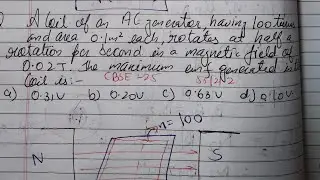 A coil of an AC generator, having 100 turns
and area 0.1m² each, rotates at half a
rotation per second in a magnetic field of
0.02T. The maximum emf generated in the
coil is:- CBSE-25 55/2/2
a) 0.31V b) 0.20V c) 0.63V d) 0.10V
n=100
N S